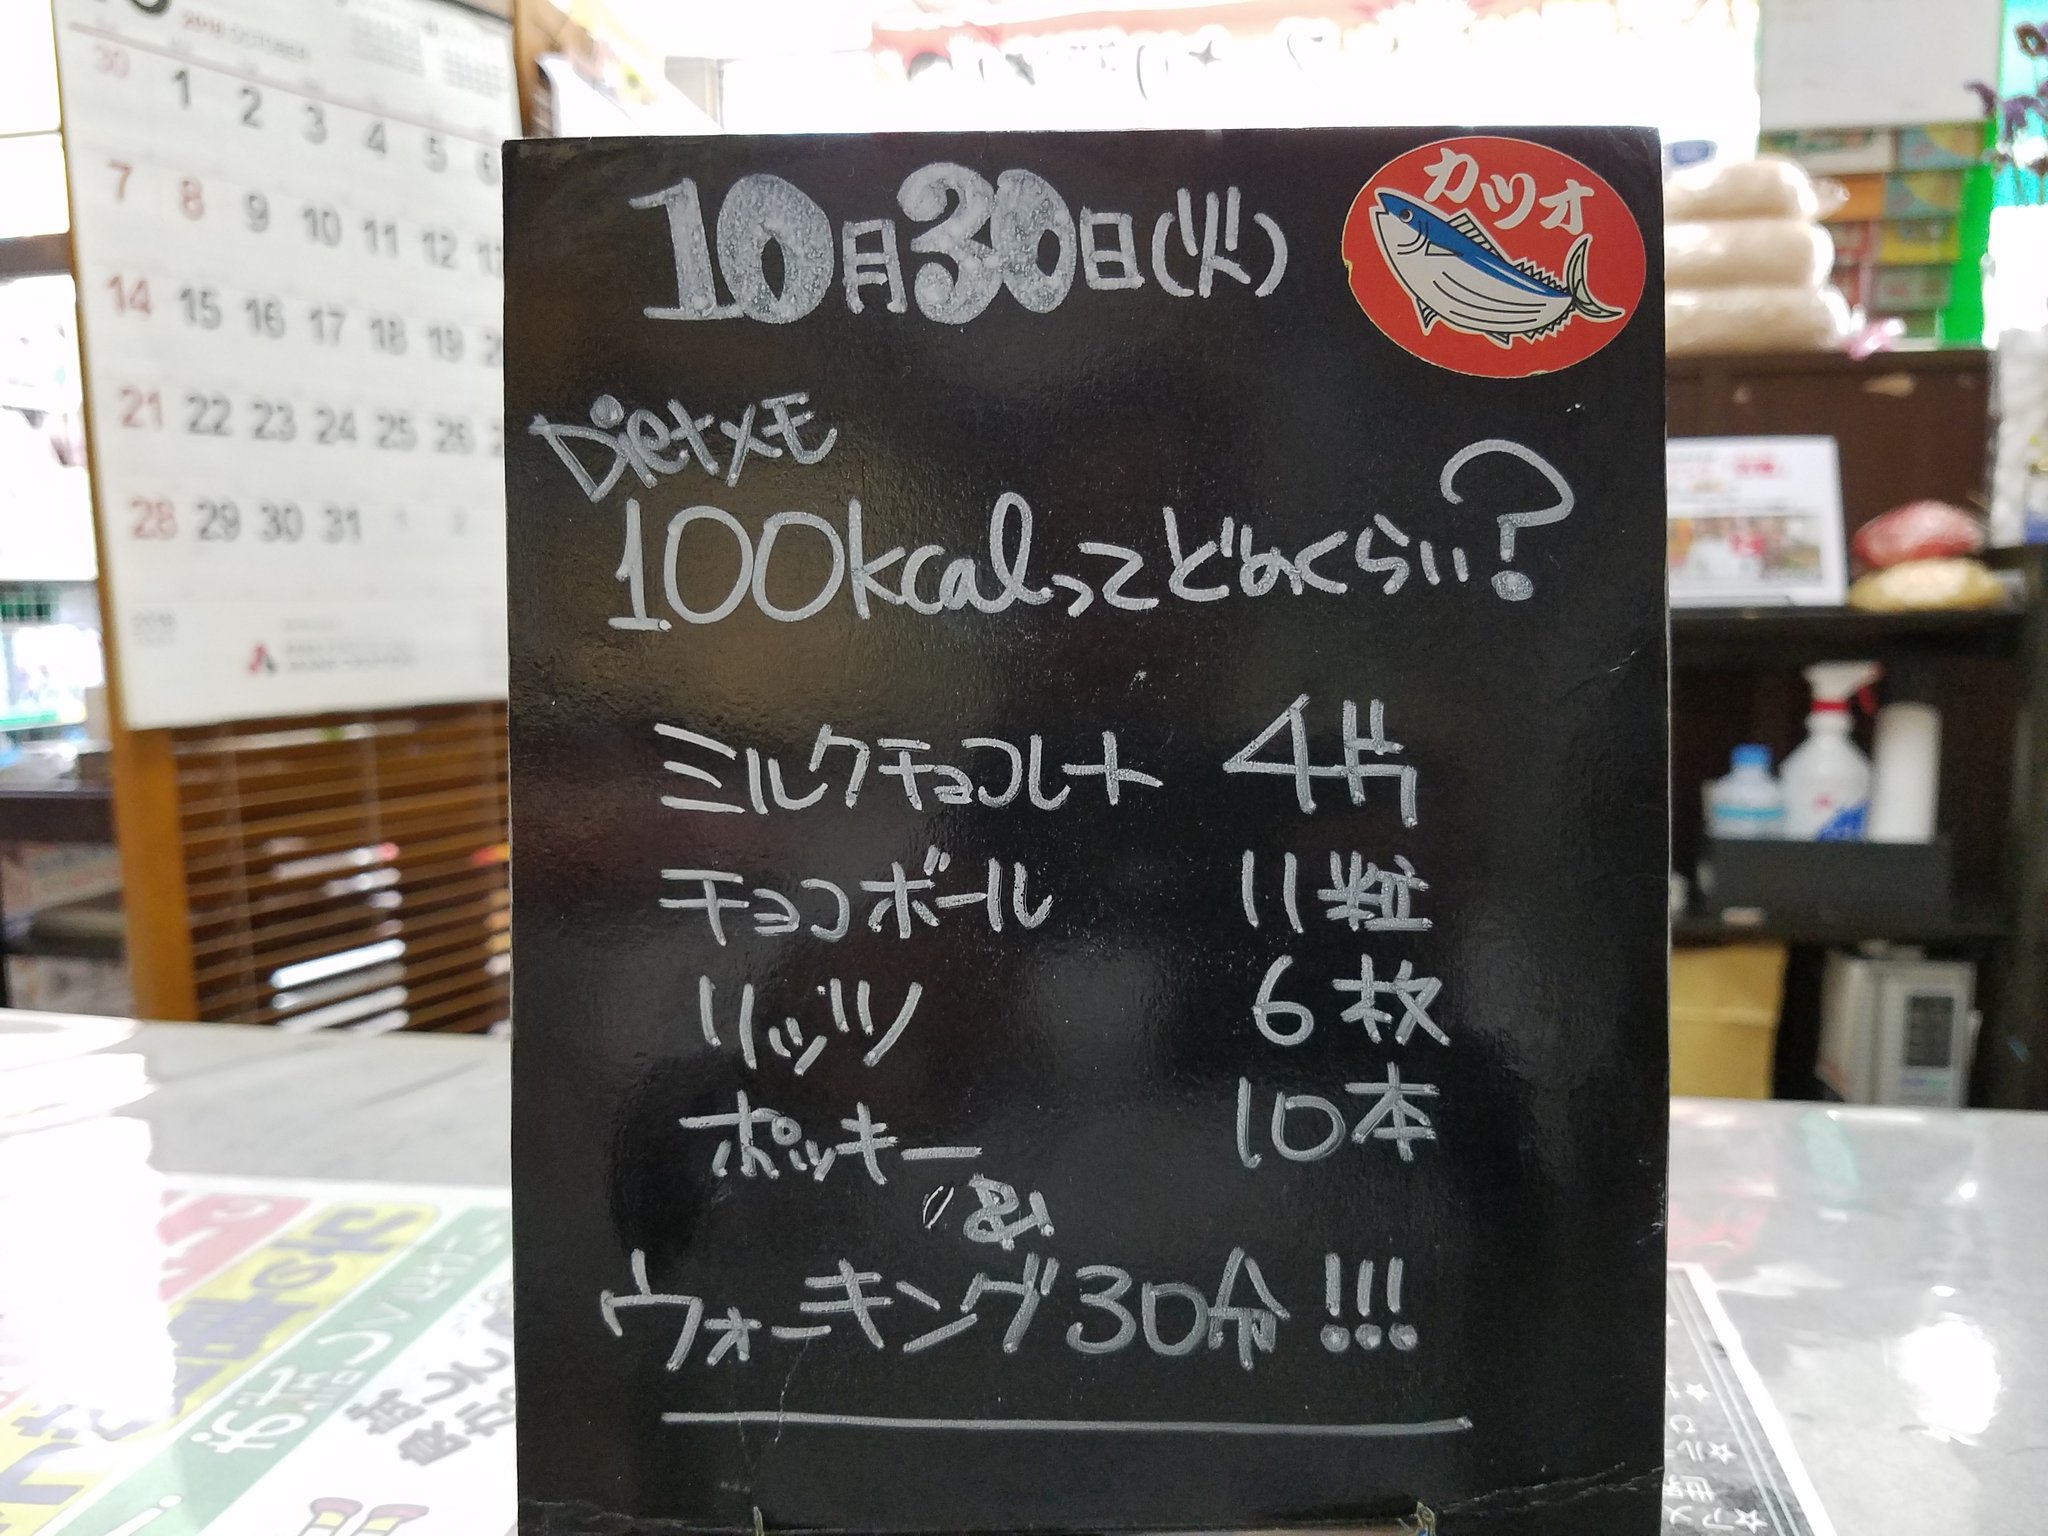 2018 OCTOBER
30 1 2 3 4 5 6
7 8 9 10 11 12 13
14 15 16 17 18 19
21 22 23 24 25 26
28 29 30 31 1 2
10月30日(火)
カツオ
Dietメモ
100kcalってどのくらい?
ミルクチョコレート 4片
チョコボール 11粒
リッツ 6枚
ポッキー 10本
&
ウォーキング30分!!!